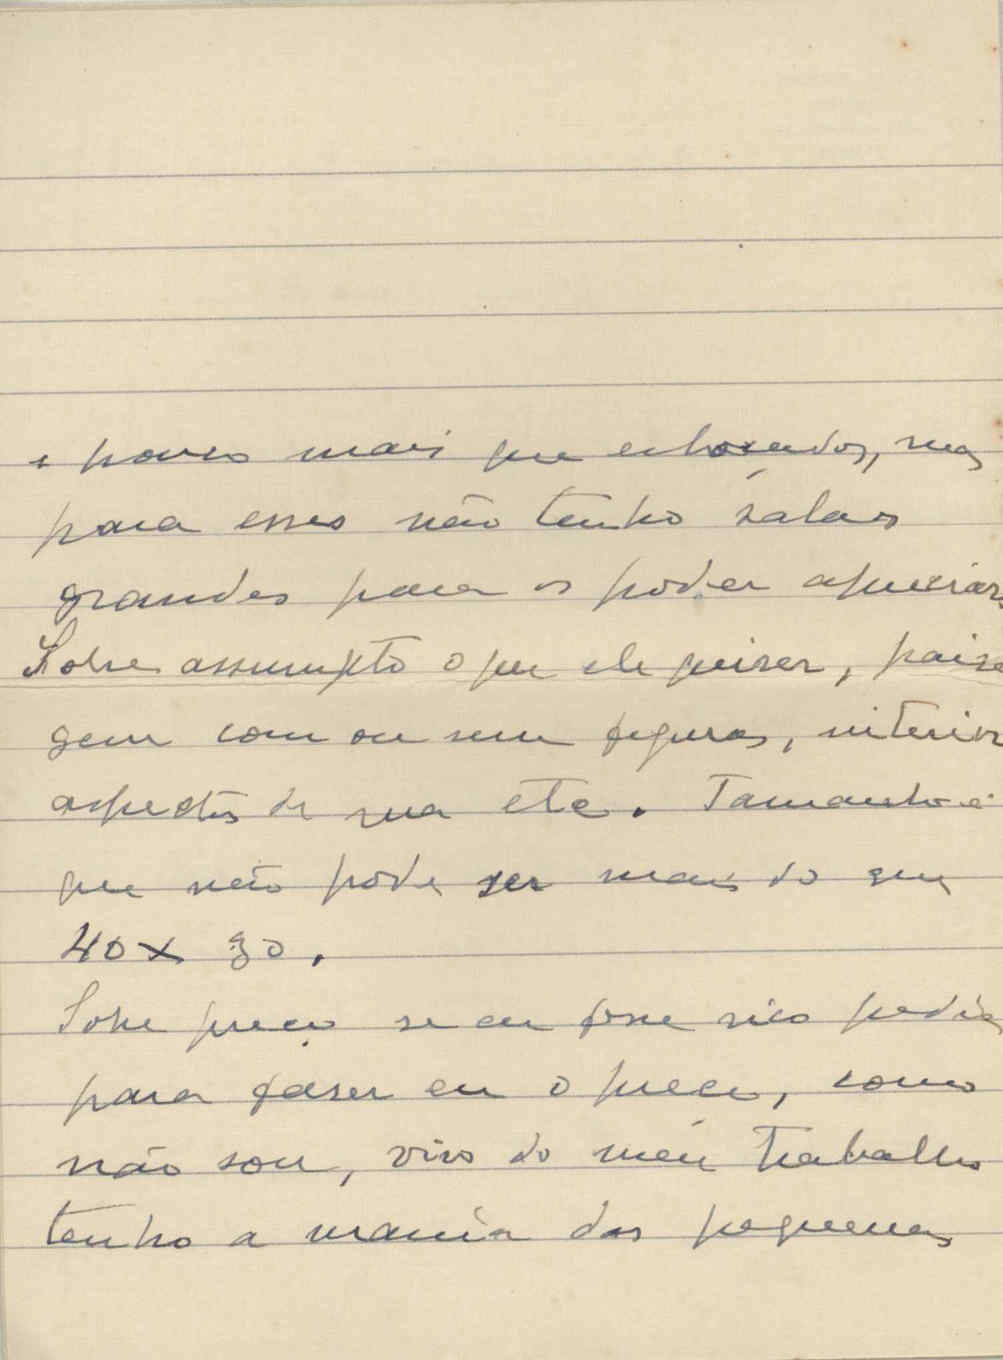 e pouco mais que esboçados, mas
para esses não tenho salas
grandes para os poder apreciar
Sobre assumpto o que ele quiser, paisa
gem com ou sem figuras, interior
aspectos de rua etc. Tamanho é
que não pode ser mais do que
40 x 30.
Sobre preço se eu fosse rico pedia
para fazer eu o preço, como
não sou, vivo do meu trabalho
tenho a mania das pequenas